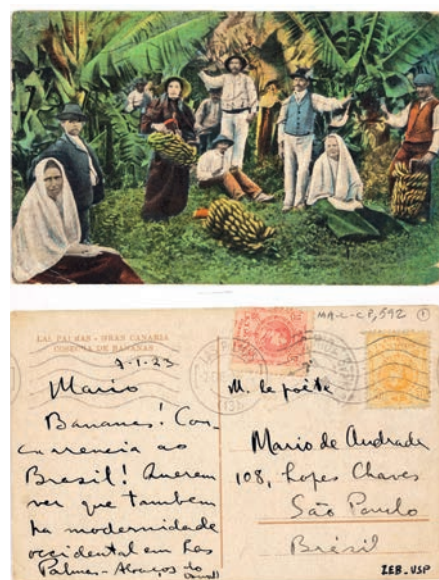 MA-C-CP, 592 1
LAS PALMAS - GRAN CANARIA
COSECHA DE BANANAS
7-1-23
Mario
Bananas! Con-
currencia ao
Brasil! Querem
ver que tambem
ha modernidade
occidental em Las
Palmas - Abraços do
M. le poète
Mario de Andrade
108, Lopes Chaves
São Paulo
Brésil
IEB-USP